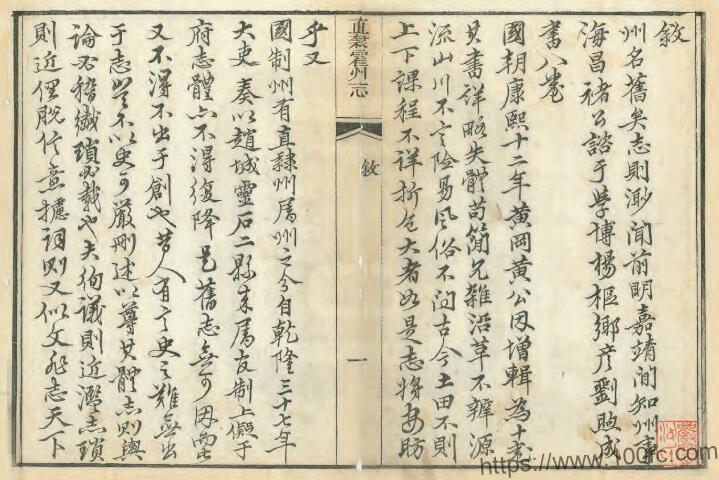 敘
州名舊矣志則渺聞前明嘉靖間知州事
海昌褚公諮于學博楊樞鄉彥劉煦成
書八卷
國朝康熙十二年黃岡黃公因增輯為十卷
其書詳略失體苟簡冗雜沿革不辨源
流山川不言險易風俗不問古今土田不則
上下課程不詳折色大者如是志將安昉
乎又
國制州有直隸州屬州之分自乾隆三十七年
大吏奏以趙城靈石二縣來屬友制上儗于
府志體亦不得復降是舊志無可因而
又不得不出于創也昔人有言史之難無出
于志豈不以史可嚴刪述以尊其體志則與
論必稽纖瑣必載也夫徇議則近濫志瑣
則近俚脫任意攄詞則又似文非志天下
直隸霍州志
敘
一
https://www.100fc.com